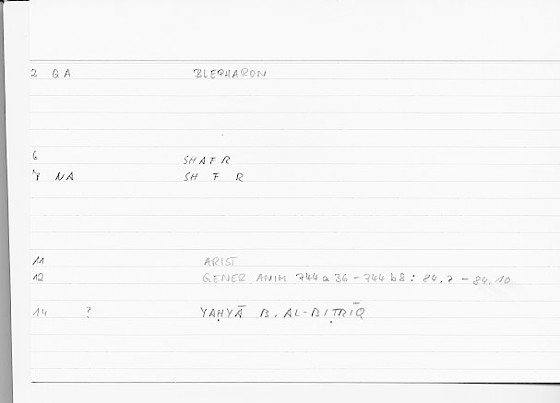 2 QA BLEPHARON
6 SHAFR
7 NA SH F R
11 ARIST
12 GENER ANIM 744a36-744b8: 84.7-84.10
14 ? YAḤYĀ B. AL-BIṬRĪQ